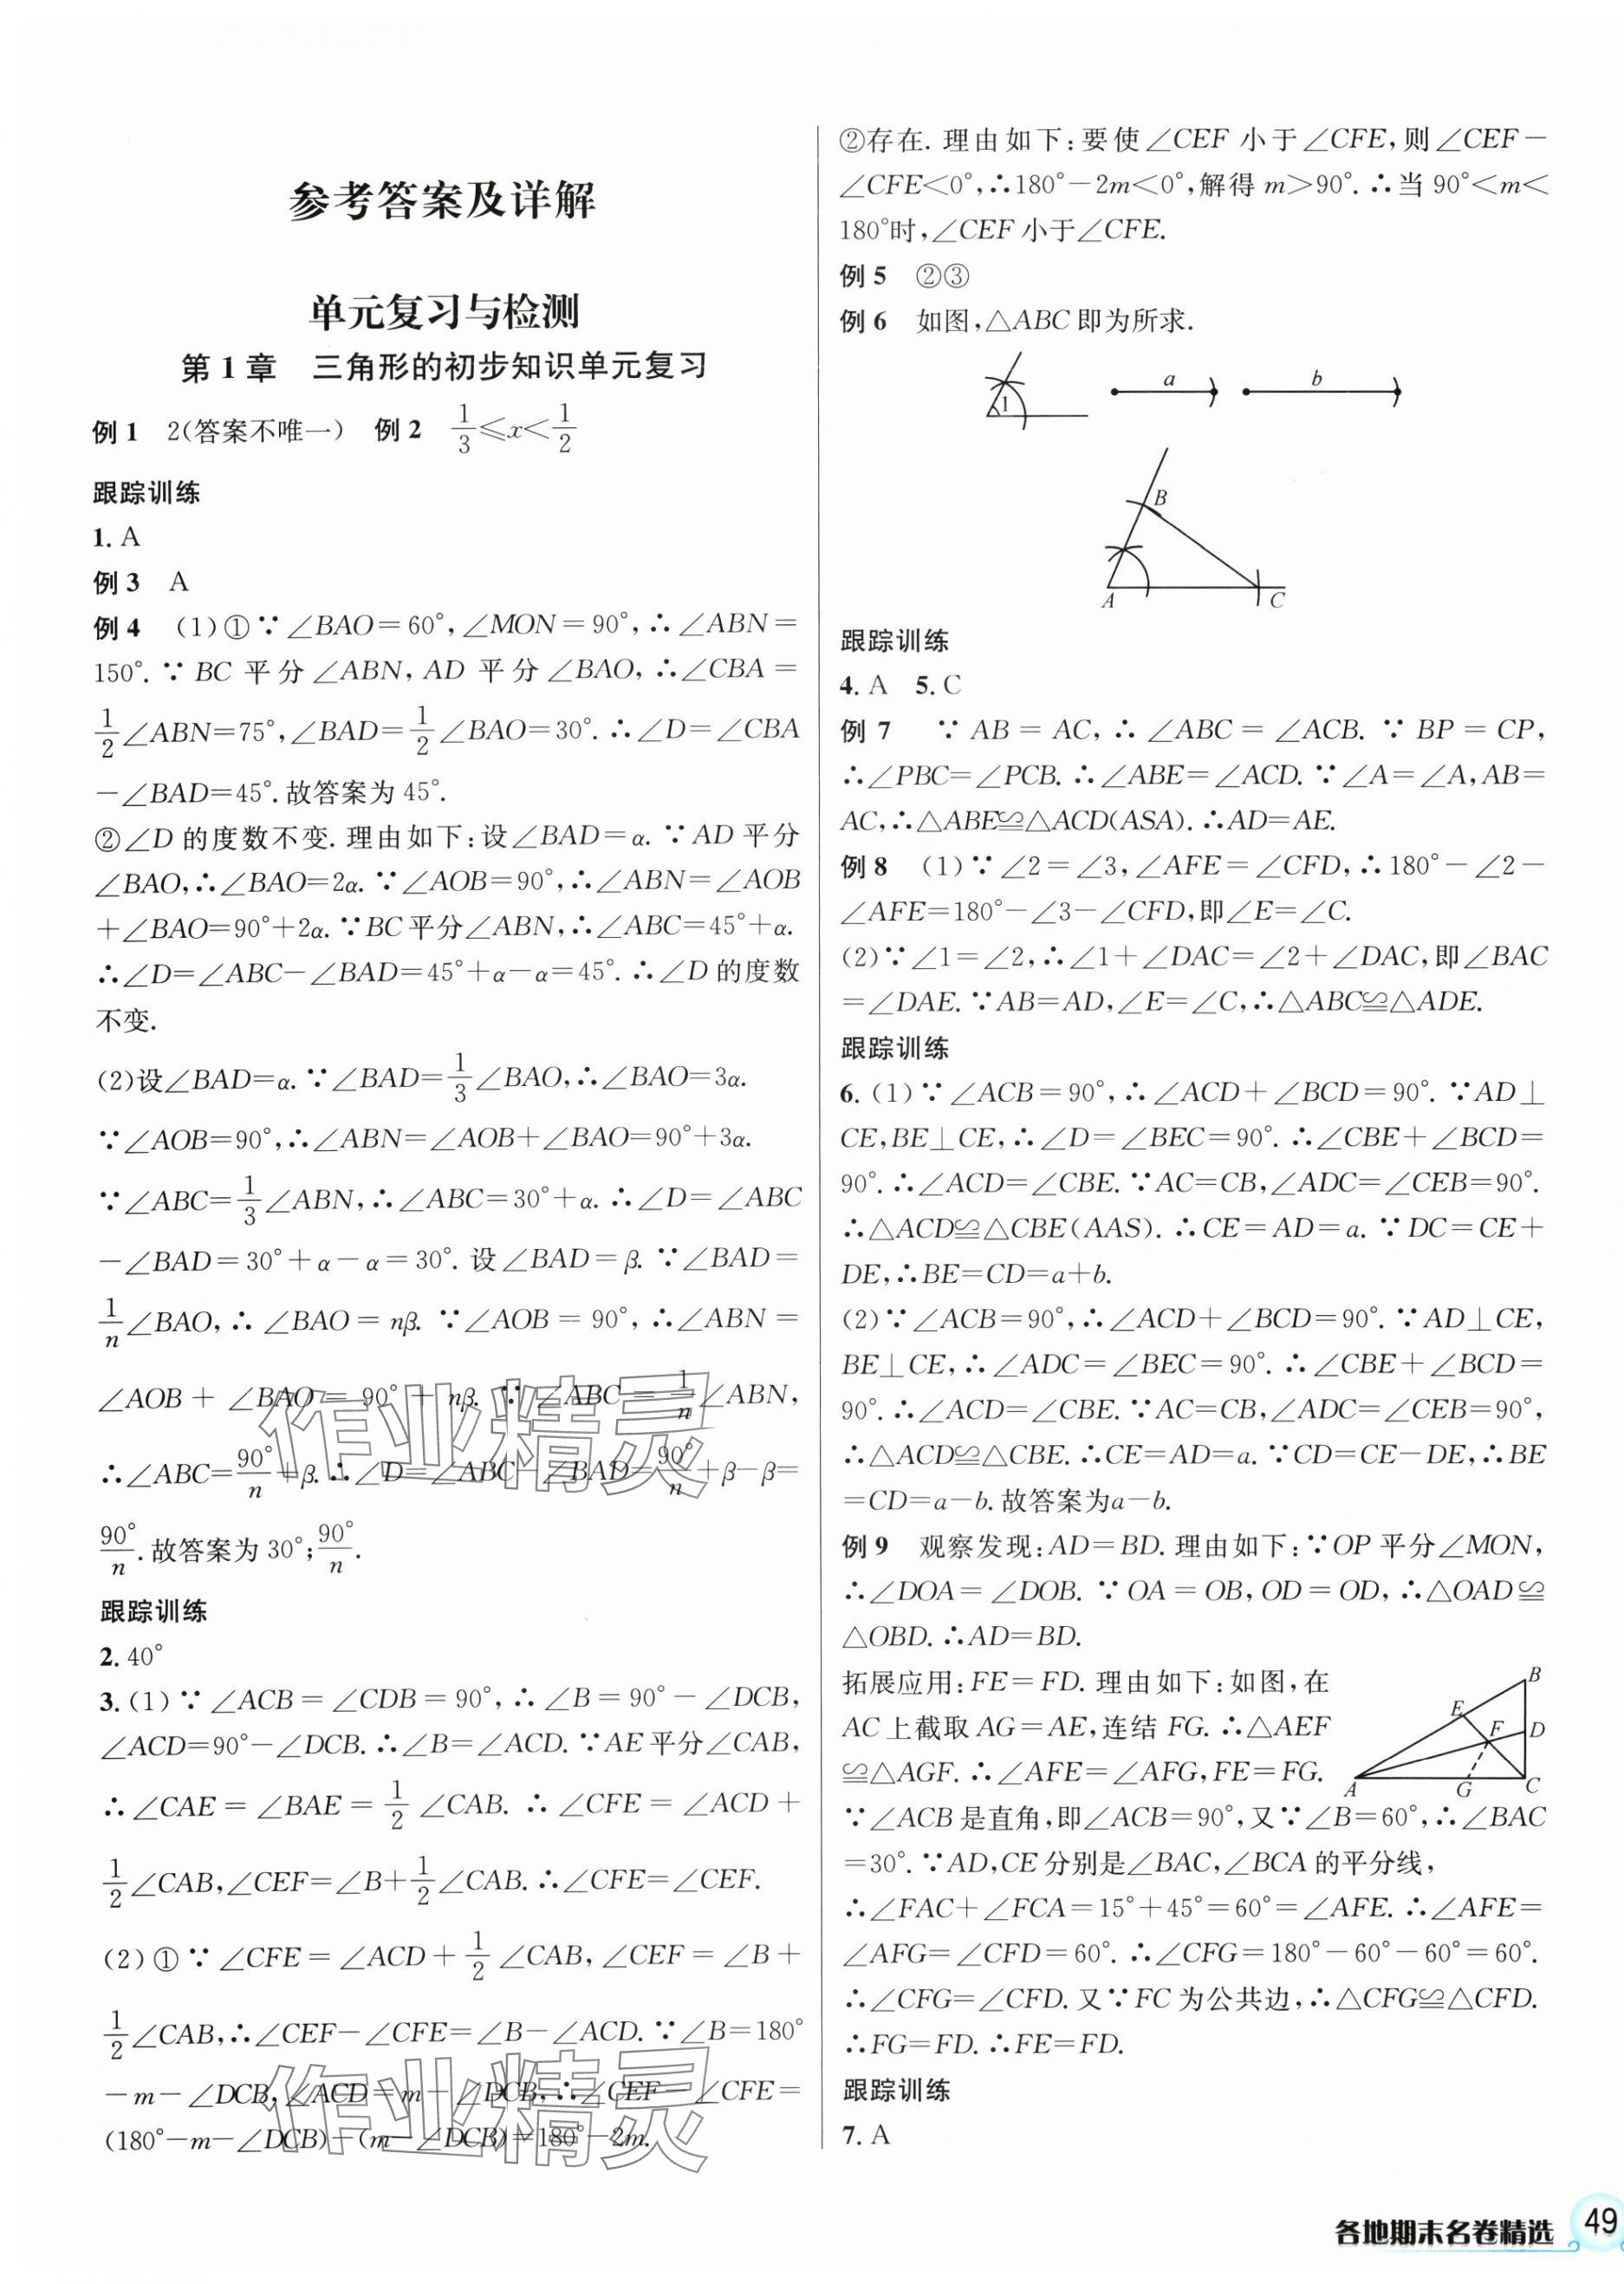 参考答案及详解
单元复习与检测
第1章 三角形的初步知识单元复习
例1 2(答案不唯一) 例2 1/3≤x<1/2
跟踪训练
1. A
例3 A
例4 (1)①∵∠BAO=60°,∠MON=90°,∴∠ABN=
150°.∵BC平分∠ABN,AD平分∠BAO,∴∠CBA=
1/2∠ABN=75°,∠BAD=1/2∠BAO=30°.∴∠D=∠CBA
-∠BAD=45°.故答案为45°.
②∠D的度数不变.理由如下:设∠BAD=α.∵AD平分
∠BAO,∴∠BAO=2α.∵∠AOB=90°,∴∠ABN=∠AOB
+∠BAO=90°+2α.∵BC平分∠ABN,∴∠ABC=45°+α.
∴∠D=∠ABC-∠BAD=45°+α-α=45°.∴∠D的度数
不变.
(2)设∠BAD=α.∵∠BAD=1/3∠BAO,∴∠BAO=3α.
∵∠AOB=90°,∴∠ABN=∠AOB+∠BAO=90°+3α.
∵∠ABC=1/3∠ABN,∴∠ABC=30°+α.∴∠D=∠ABC
-∠BAD=30°+α-α=30°.设∠BAD=β.∵∠BAD=
1/n∠BAO,∴∠BAO=nβ.∵∠AOB=90°,∴∠ABN=
∠AOB+∠BAO=90°+nβ.∵∠ABC=1/n∠ABN,
∴∠ABC=90°/n+β.∴∠D=∠ABC-∠BAD=90°/n+β-β=
90°/n.故答案为30°;90°/n.
跟踪训练
2. 40°
3. (1)∵∠ACB=∠CDB=90°,∴∠B=90°-∠DCB,
∠ACD=90°-∠DCB.∴∠B=∠ACD.∵AE平分∠CAB,
∴∠CAE=∠BAE=1/2∠CAB.∴∠CFE=∠ACD+
1/2∠CAB,∠CEF=∠B+1/2∠CAB.∴∠CFE=∠CEF.
(2)①∵∠CFE=∠ACD+1/2∠CAB,∠CEF=∠B+
1/2∠CAB,∴∠CEF-∠CFE=∠B-∠ACD.∵∠B=180°
-m-∠DCB,∠ACD=m-∠DCB,∴∠CEF-∠CFE=
(180°-m-∠DCB)-(m-∠DCB)=180°-2m.
②存在.理由如下:要使∠CEF小于∠CFE,则∠CEF-
∠CFE<0°,∴180°-2m<0°,解得m>90°.∴当90°<m<
180°时,∠CEF小于∠CFE.
例5 ②③
例6 如图,△ABC即为所求.
1 a b
B
A C
跟踪训练
4. A 5. C
例7 ∵AB=AC,∴∠ABC=∠ACB.∵BP=CP,
∴∠PBC=∠PCB.∴∠ABE=∠ACD.∵∠A=∠A,AB=
AC,∴△ABE≌△ACD(ASA).∴AD=AE.
例8 (1)∵∠2=∠3,∠AFE=∠CFD,∴180°-∠2-
∠AFE=180°-∠3-∠CFD,即∠E=∠C.
(2)∵∠1=∠2,∴∠1+∠DAC=∠2+∠DAC,即∠BAC
=∠DAE.∵AB=AD,∠E=∠C,∴△ABC≌△ADE.
跟踪训练
6. (1)∵∠ACB=90°,∴∠ACD+∠BCD=90°.∵AD⊥
CE,BE⊥CE,∴∠D=∠BEC=90°.∴∠CBE+∠BCD=
90°.∴∠ACD=∠CBE.∵AC=CB,∠ADC=∠CEB=90°.
∴△ACD≌△CBE(AAS).∴CE=AD=a.∵DC=CE+
DE,∴BE=CD=a+b.
(2)∵∠ACB=90°,∴∠ACD+∠BCD=90°.∵AD⊥CE,
BE⊥CE,∴∠ADC=∠BEC=90°.∴∠CBE+∠BCD=
90°.∴∠ACD=∠CBE.∵AC=CB,∠ADC=∠CEB=90°,
∴△ACD≌△CBE.∴CE=AD=a.∵CD=CE-DE,∴BE
=CD=a-b.故答案为a-b.
例9 观察发现:AD=BD.理由如下:∵OP平分∠MON,
∴∠DOA=∠DOB.∵OA=OB,OD=OD,∴△OAD≌
△OBD.∴AD=BD.
拓展应用:FE=FD.理由如下:如图,在
AC上截取AG=AE,连结FG.∴△AEF
≌△AGF.∴∠AFE=∠AFG,FE=FG.
B
E F D
A G C
∵∠ACB是直角,即∠ACB=90°,又∵∠B=60°,∴∠BAC
=30°.∵AD,CE分别是∠BAC,∠BCA的平分线,
∴∠FAC+∠FCA=15°+45°=60°=∠AFE.∴∠AFE=
∠AFG=∠CFD=60°.∴∠CFG=180°-60°-60°=60°.
∴∠CFG=∠CFD.又∵FC为公共边,∴△CFG≌△CFD.
∴FG=FD.∴FE=FD.
跟踪训练
7. A
作业精灵
作业精灵
各地期末名卷精选 49